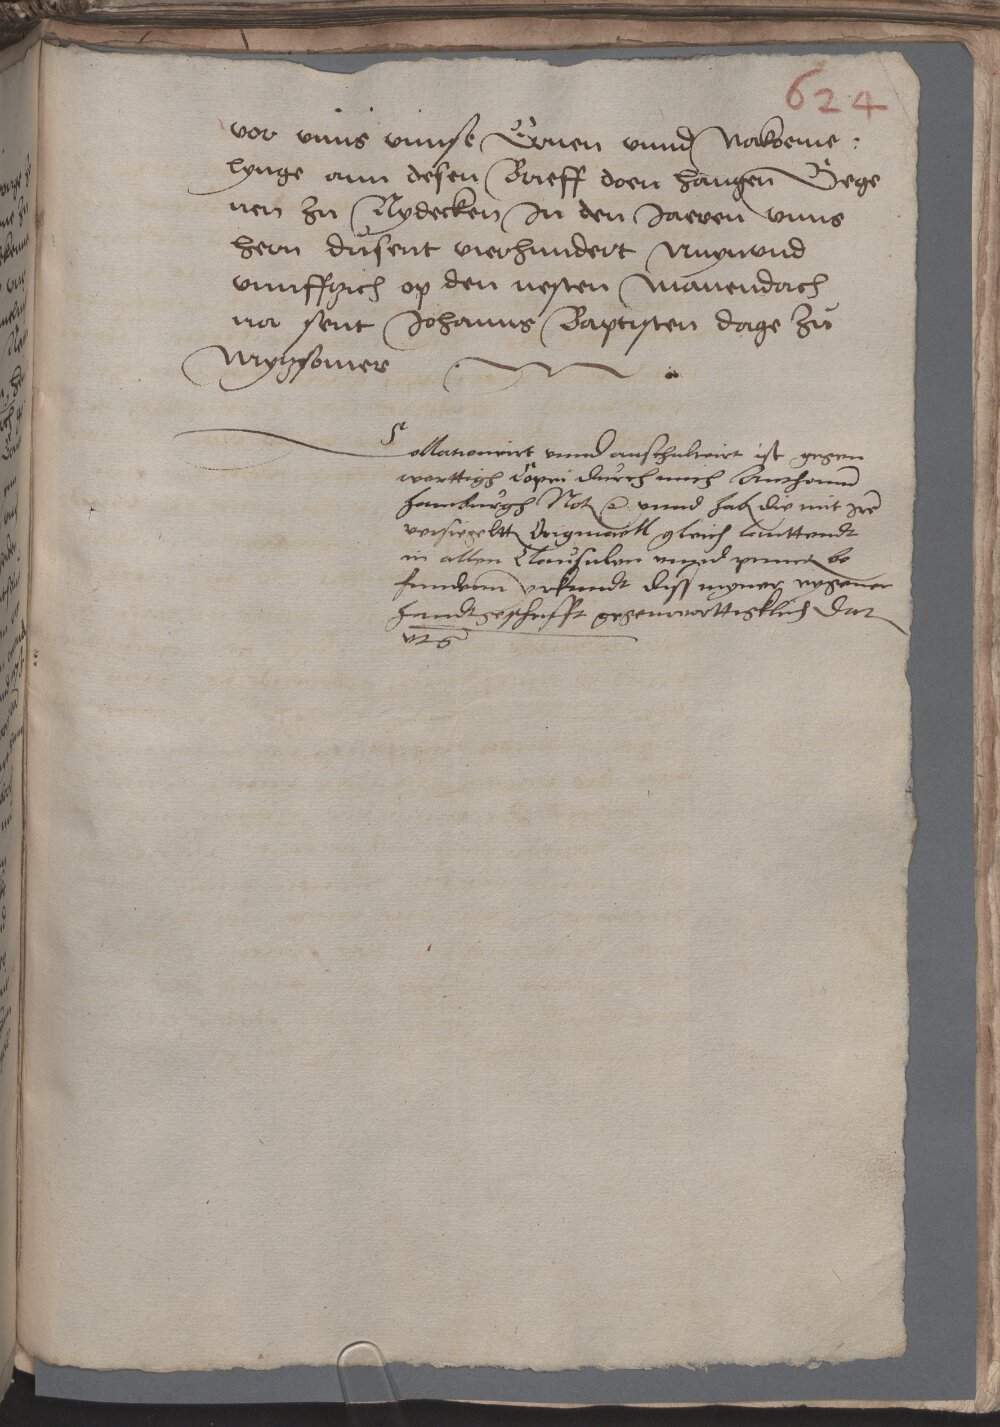 624
vor vnns vnnse Eruen vnnd Nakoeme :
lynge ann desen Brieff doen hangen Gege
nen zu Nydecken In den Jaeren vnns
hern dusent vierhundert Nuynvnd
vunffzich op den nesten Manendach
na sent Johanns Baptisten dage zu
Mytzsomer
Collationiert vnnd auschultiert ist gegen
werttigh Copei durch mich
hamburgh Not vnnd hab die mit Ire
versiegeltt Originaell gleich lauttendt
in allen Clausulen vnnd punct be
funden vrkundt diss myner eygener
handtgeschrifft gegenwerttigklich Dat
vt s